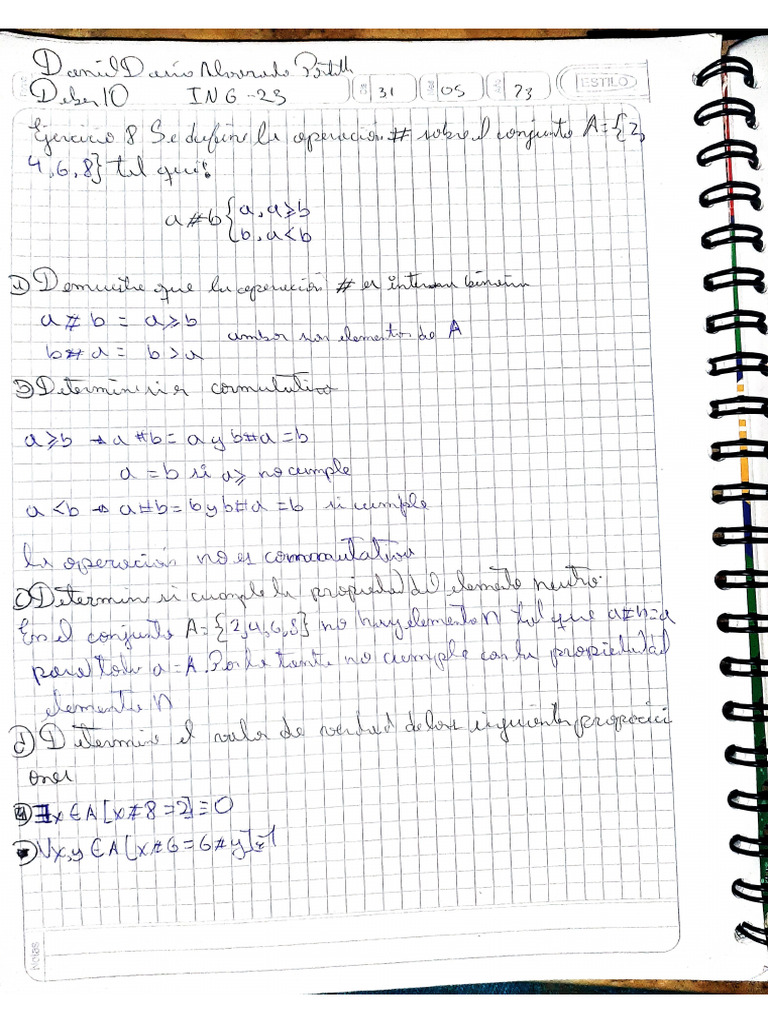 Daniel Dario Alvarado
Deber 10 ING-23 31 05 23 ESTILO
Ejercicio 8 Se define la operación # sobre el conjunto A={2,
4,6,8} tal que:
a#b{a, a≥b
b, a<b
a) Demuestre que la operación # es binaria
a # b = a≥b
ambos son elementos de A
b# a = b>a
b) Determine si es conmutativa
a≥b → a#b= a y b#a=b
a=b si a≥ no cumple
a<b → a#b=b y b#a=b si cumple
la operación no es conmutativa
c) Determine si cumple la propiedad del elemento neutro.
En el conjunto A={2,4,6,8} no hay elemento n tal que a#n=a
para todo a=A. Por lo tanto no cumple con la propiedad
elemento n
d) Determine el valor de verdad de las siguientes proposici
ones
∃x∈A[x#8=2]≡0
∀x,y∈A[x#6=6#y]≡1
Notas